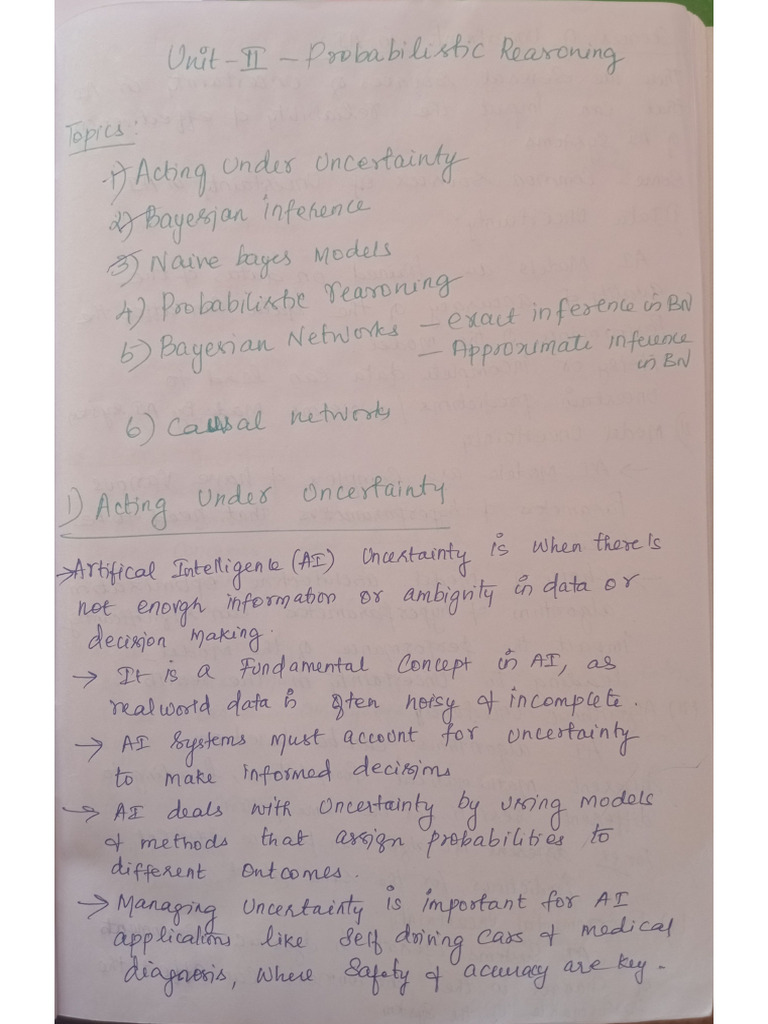 Unit-II - Probabilistic Reasoning
Topics:
1) Acting Under Uncertainty
2) Bayesian inference
3) Naive bayes Models
4) Probabilistic reasoning
5) Bayesian Networks - exact inference in BN
- Approximate inference in BN
6) Causal networks
1) Acting Under Uncertainty
→ Artifical Intelligence (AI) Uncertainty is when there is
not enough information or ambiguity in data or
decision making.
→ It is a Fundamental Concept in AI, as
real world data is often noisy & incomplete.
→ AI Systems must account for uncertainty
to make informed decisions
→ AI deals with Uncertainty by using models
& methods that assign probabilities to
different outcomes.
→ Managing Uncertainty is important for AI
applications like Self driving cars & medical
diagnosis, where Safety & accuracy are key.